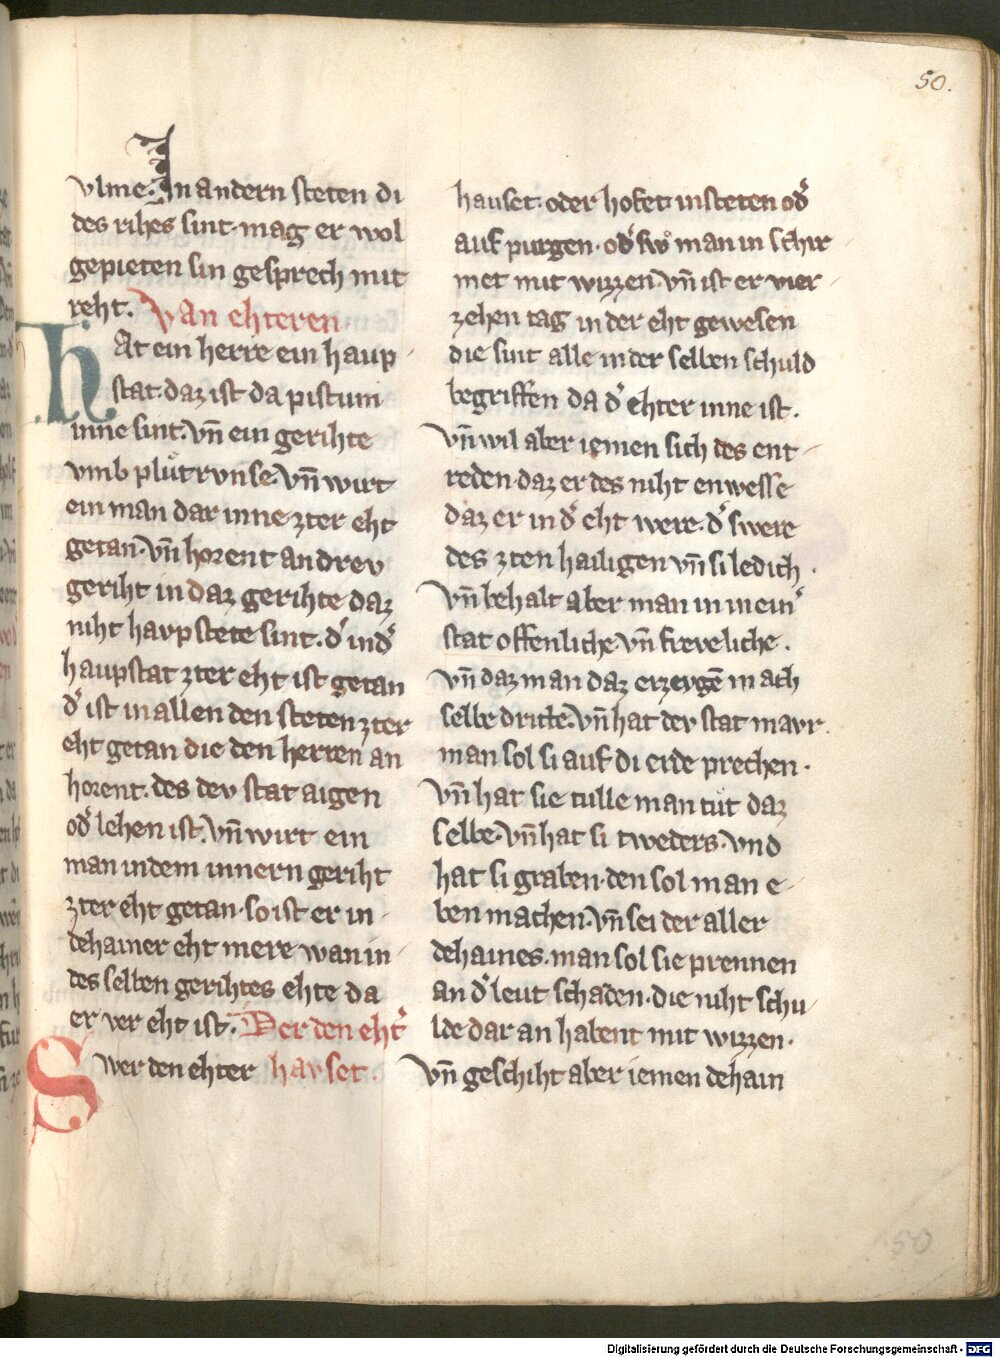 50.
vlme. In andern steten di
des rihes sint. mag er wol
gepieten sin gesprech mit
reht. Van ehteren
Hat ein herre ein haup
stat. daz ist da pistum
inne sint. vn̄ ein gerihte
vmb plůtrvnse. vn̄ wirt
ein man dar inne zter eht
getan. vn̄ horent andrev
geriht in daz gerihte daz
niht havpstete sint. d' in d'
haupstat zter eht ist getan
d' ist in allen den steten zter
eht getan die den herren an
horent. des dev stat aigen
od' lehen ist. vn̄ wirt ein
man in dem innern geriht
zter eht getan. so ist er in
dehainer eht mere wan in
des selben gerihtes ehte da
er ver eht ist. Der den eht'
Swer den ehter havset.
hauset. oder hofet in steten od'
auf purgen. od' swͦ man in schir
met mit wizzen. vn̄ ist er vier
zehen tag in der eht gewesen
die sint alle in der selben schuld
begriffen da d' ehter inne ist.
vn̄ wil aber iemen sich des ent
reden. daz er des niht enwesse
daz er in d' eht were. d' swere
des zten hailigen vn̄ si ledich.
vn̄ behalt aber man in in ein'
stat offenliche vn̄ freveliche.
vn̄ daz man daz erzevgē mach
selbe dritte. vn̄ hat dev stat mavr.
man sol si auf di erde prechen.
vn̄ hat sie tulle man tůt daz
selbe. vn̄ hat si tweders. vnd
hat si graben. den sol man e
ben machen. vn̄ sei der aller
dehaines. man sol sie prennen
an d' leut schaden. die niht schu
lde dar an habent mit wizzen.
vn̄ geschiht aber iemen dehain
50
Digitalisierung gefördert durch die Deutsche Forschungsgemeinschaft - DFG